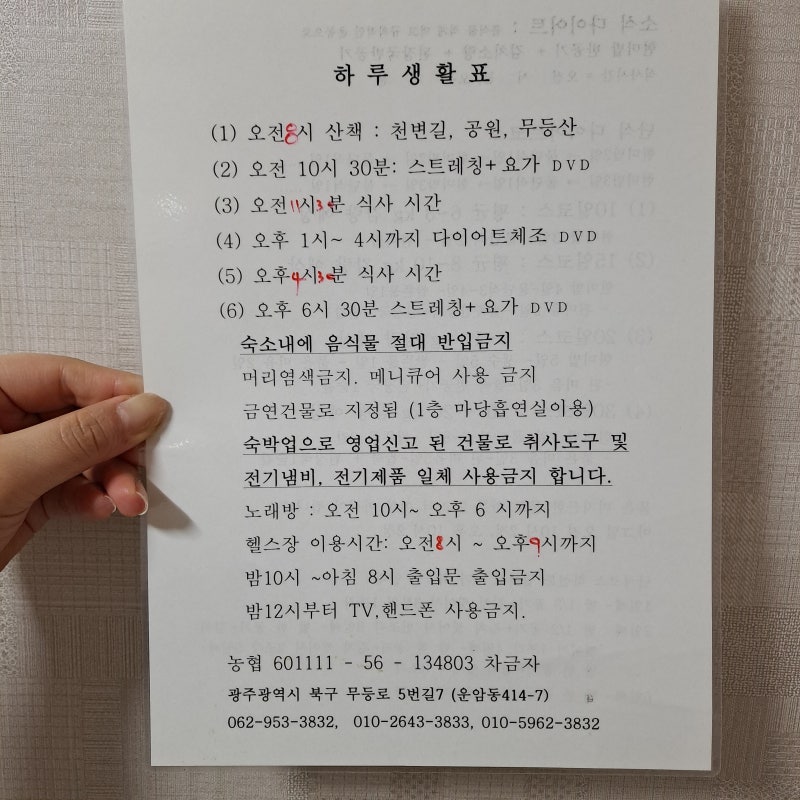 하루생활표
(1) 오전8시 산책 : 천변길, 공원, 무등산
(2) 오전 10시 30분: 스트레칭+요가 DVD
(3) 오전11시30분 식사 시간
(4) 오후 1시~ 4시까지 다이어트체조 DVD
(5) 오후4시30분 식사 시간
(6) 오후 6시 30분 스트레칭+요가 DVD
숙소내에 음식물 절대 반입금지
머리염색금지. 메니큐어 사용 금지
금연건물로 지정됨 (1층 마당흡연실이용)
숙박업으로 영업신고 된 건물로 취사도구 및
전기냄비, 전기제품 일체 사용금지 합니다.
노래방 : 오전 10시~ 오후 6 시까지
헬스장 이용시간: 오전8시 ~ 오후9시까지
밤10시 ~아침 8시 출입문 출입금지
밤12시부터 TV,핸드폰 사용금지.
농협 601111 - 56 - 134803 차금자
광주광역시 북구 무등로 5번길7 (운암동414-7)
062-953-3832, 010-2643-3833, 010-5962-3832